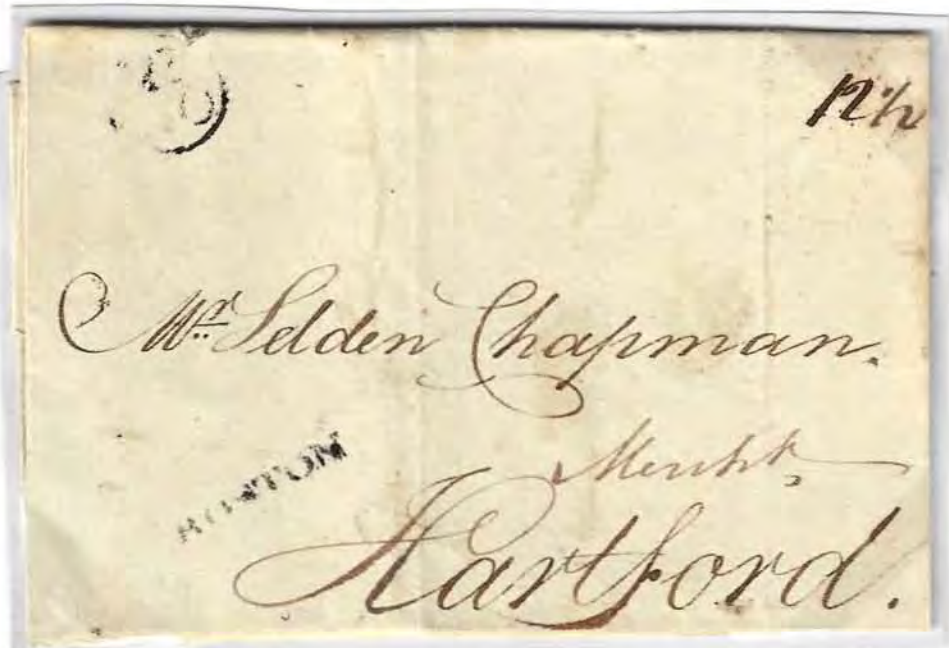 12 1/2
Mr Selden Chapman.
Mercht,
BOSTON
Hartford.